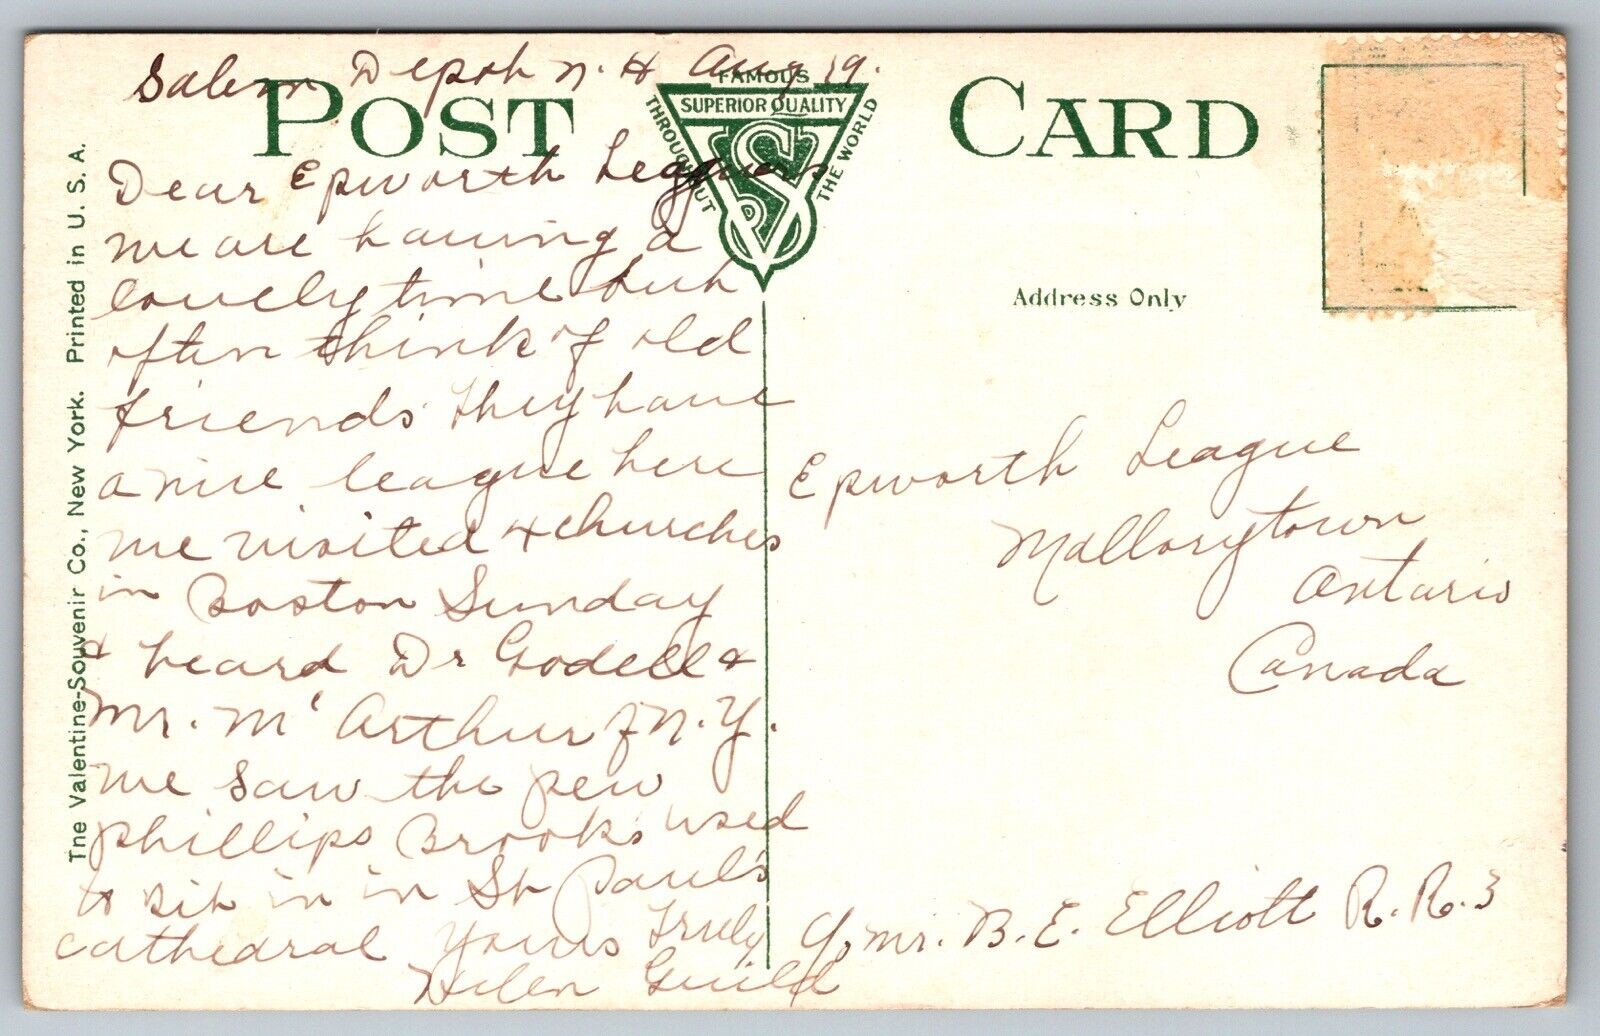 Salem Depot N. H Aug 19.
POST CARD
FAMOUS
SUPERIOR QUALITY
THROUGHOUT
THE WORLD
VS
Dear Epworth Leaguers
we are having a
lovely time but
often think of old
friends. They have
a nice league here
we visited 4 churches
in Boston Sunday
& heard Dr Godell &
Mr. Mc Arthur of N. Y.
we saw the pew
phillips Brooks used
to sit in in St Paul's
cathedral yours Truly
Helen Guild
Address Only
Epworth League
Mallorytown
Ontario
Canada
Mr. B. E. Elliott R. R. 3
The Valentine-Souvenir Co., New York. Printed in U. S. A.